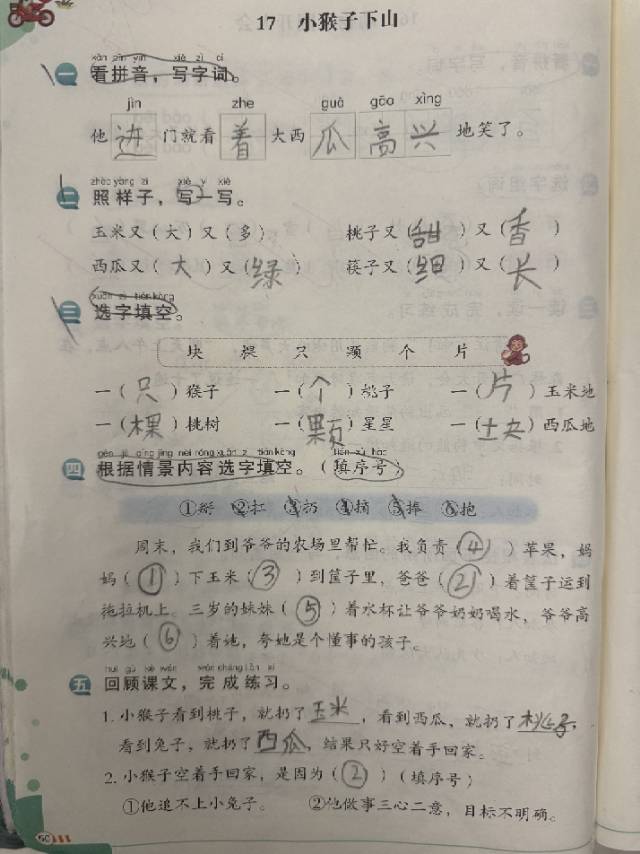 17 小猴子下山
kàn pīn yīn xiě zì cí
一 看拼音，写字词。
jìn zhe guā gāo xìng
他 进 门就看 着 大西 瓜 高 兴 地笑了。
zhào yàng zi xiě yì xiě
二 照样子，写一写。
玉米又（大）又（多） 桃子又（甜）又（香）
西瓜又（大）又（绿） 筷子又（细）又（长）
xuǎn zì tián kòng
三 选字填空。
块 棵 只 颗 个 片
一（只）猴子 一（个）桃子 一（片）玉米地
一（棵）桃树 一（颗）星星 一（块）西瓜地
gēn jù qíng jǐng nèi róng xuǎn zì tián kòng tián xù hào
四 根据情景内容选字填空。（填序号）
①掰 ②扛 ③扔 ④摘 ⑤捧 ⑥抱
周末，我们到爷爷的农场里帮忙。我负责（④）苹果，妈
妈（①）下玉米（③）到筐子里，爸爸（②）着筐子运到
拖拉机上。三岁的妹妹（⑤）着水杯让爷爷奶奶喝水，爷爷高
兴地（⑥）着她，夸她是个懂事的孩子。
huí gù kè wén wán chéng liàn xí
五 回顾课文，完成练习。
1. 小猴子看到桃子，就扔了玉米，看到西瓜，就扔了桃子，
看到兔子，就扔了西瓜，结果只好空着手回家。
2. 小猴子空着手回家，是因为（②）（填序号）
①他追不上小兔子。 ②他做事三心二意，目标不明确。
60